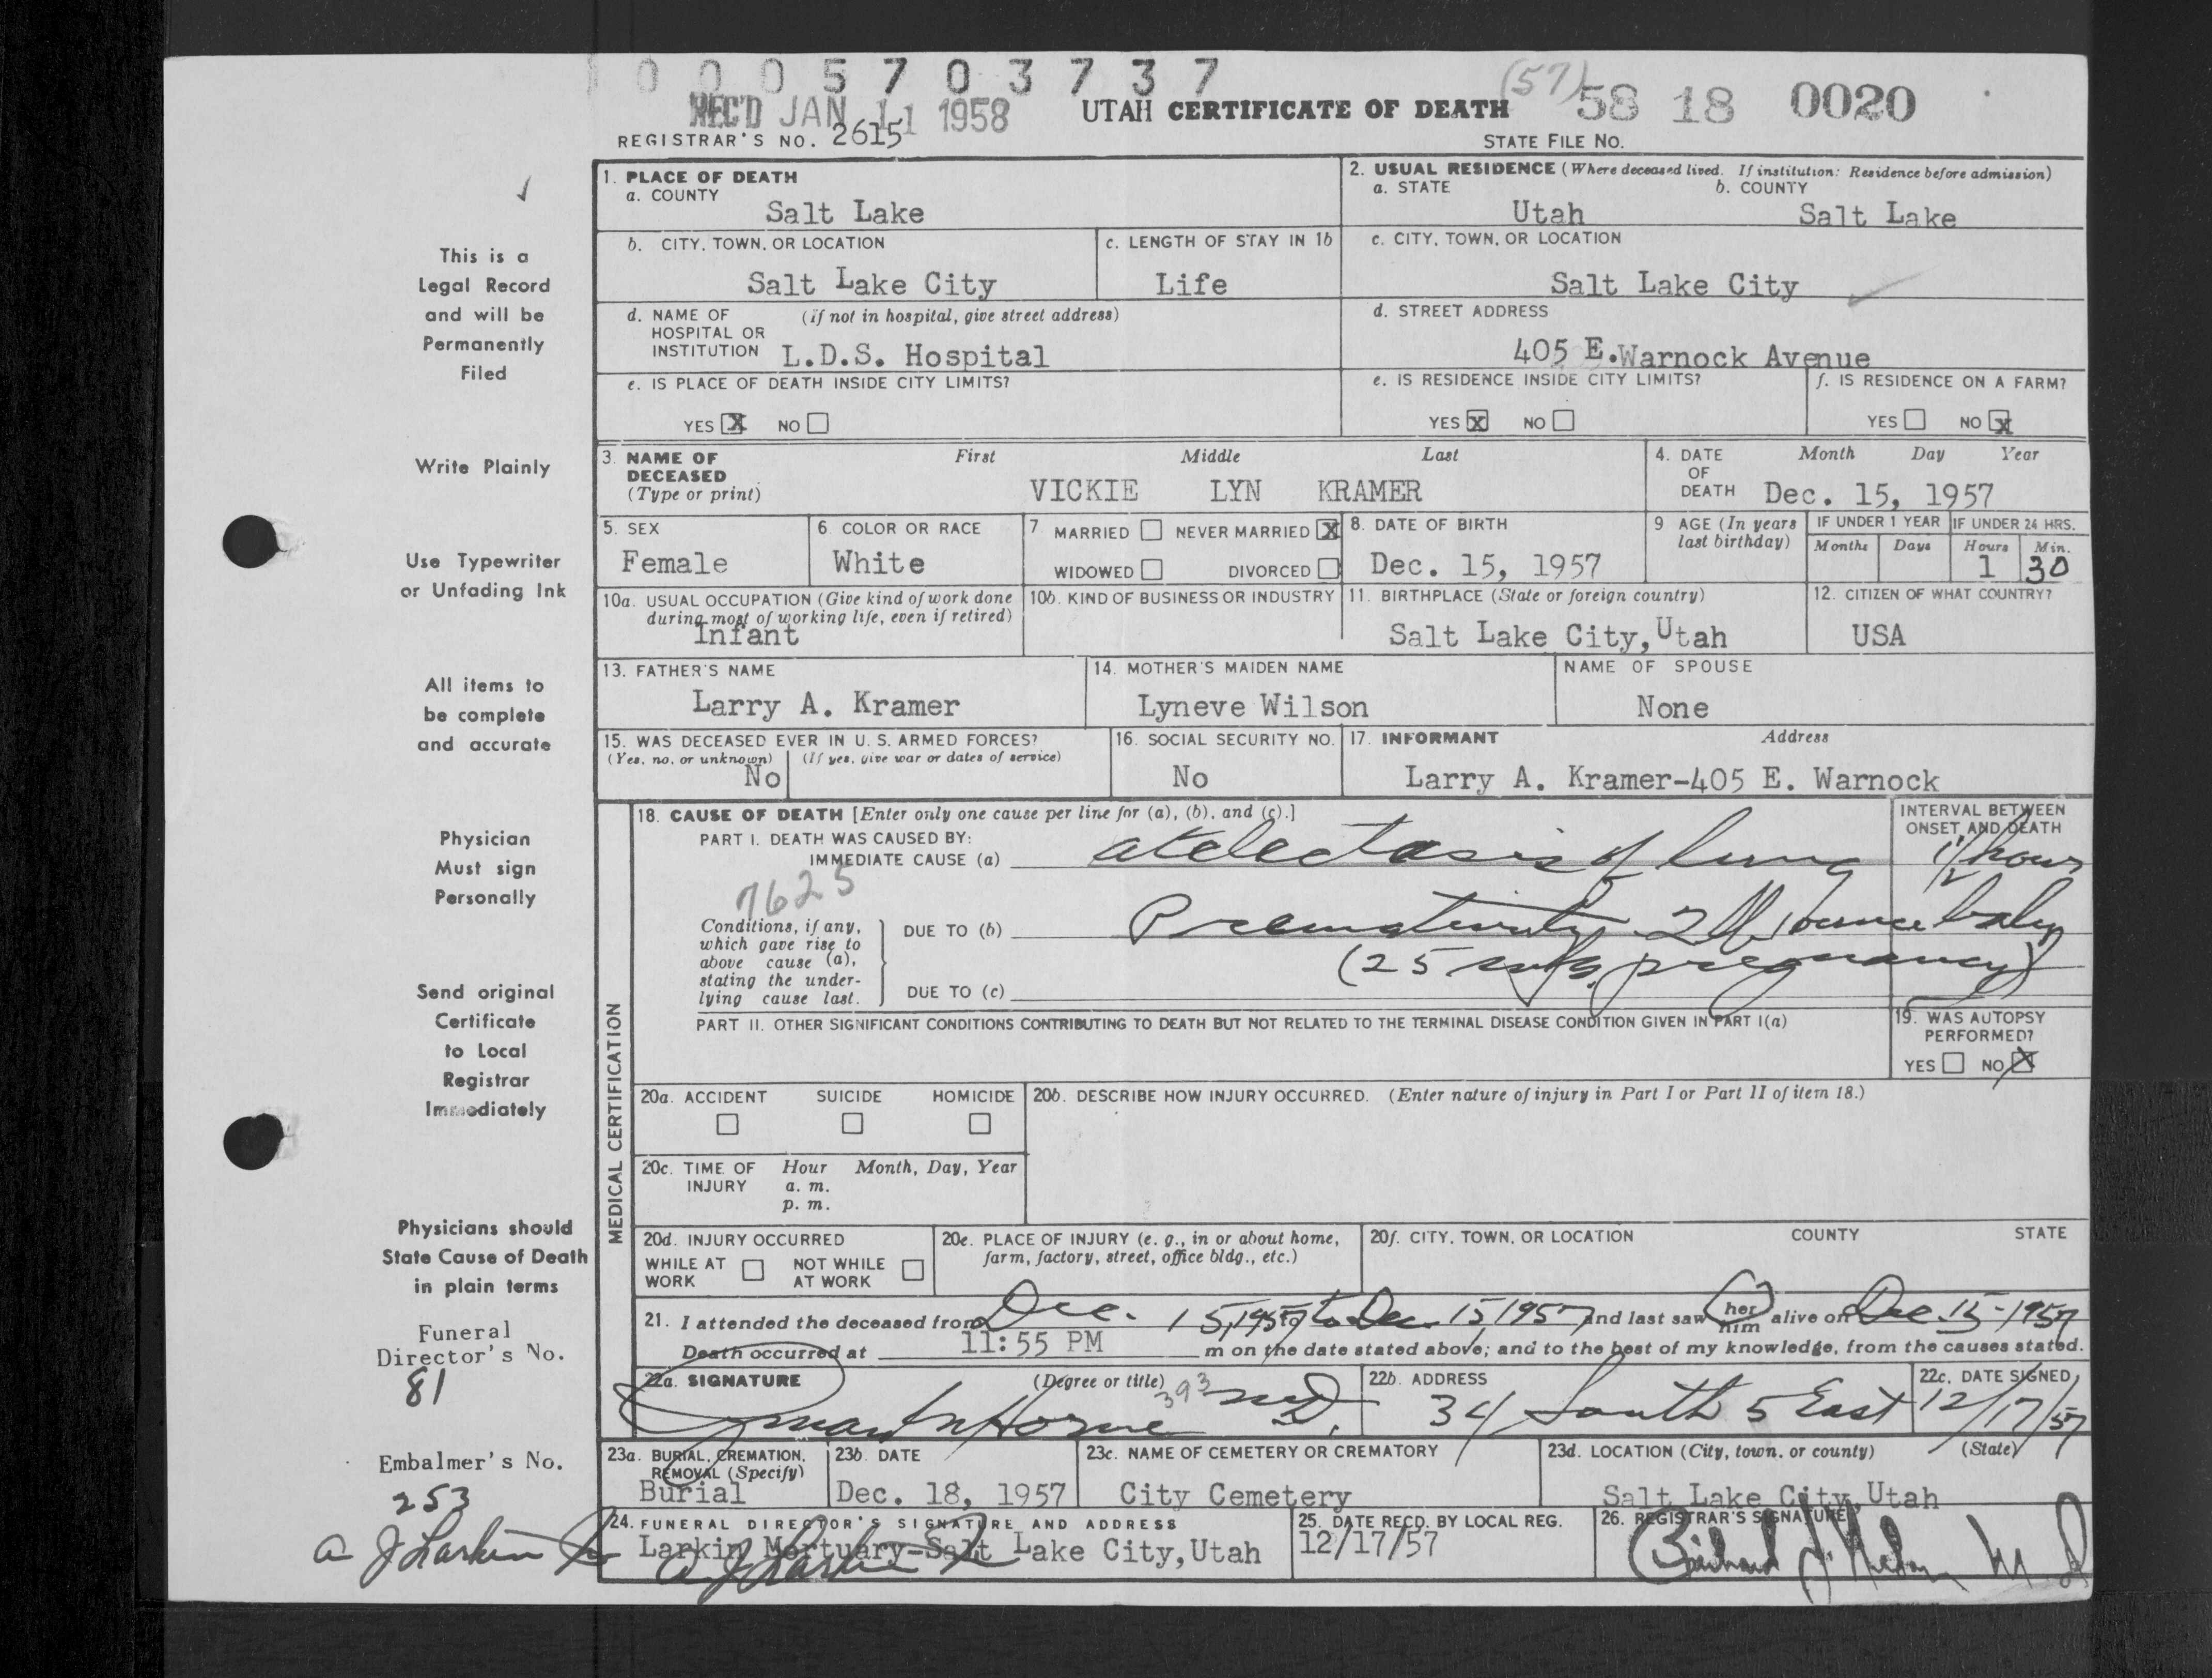 0 0 0 5 7 0 3 7 3 7
REC'D JAN 11 1958 UTAH CERTIFICATE OF DEATH (57) 58 18 0020
REGISTRAR'S NO. 2615 STATE FILE NO.
This is a
Legal Record
and will be
Permanently
Filed
Write Plainly
Use Typewriter
or Unfading Ink
All items to
be complete
and accurate
Physician
Must sign
Personally
Send original
Certificate
to Local
Registrar
Immediately
Physicians should
State Cause of Death
in plain terms
Funeral
Director's No.
81
Embalmer's No.
253
a J Larkin Jr
1. PLACE OF DEATH
a. COUNTY
Salt Lake
2. USUAL RESIDENCE (Where deceased lived. If institution: Residence before admission)
a. STATE b. COUNTY
Utah Salt Lake
b. CITY, TOWN, OR LOCATION
Salt Lake City
c. LENGTH OF STAY IN 1b
Life
c. CITY, TOWN, OR LOCATION
Salt Lake City
d. NAME OF (if not in hospital, give street address)
HOSPITAL OR
INSTITUTION L.D.S. Hospital
d. STREET ADDRESS
405 E. Warnock Avenue
e. IS PLACE OF DEATH INSIDE CITY LIMITS?
YES X NO
e. IS RESIDENCE INSIDE CITY LIMITS?
YES X NO
f. IS RESIDENCE ON A FARM?
YES NO X
3. NAME OF DECEASED (Type or print) First Middle Last
VICKIE LYN KRAMER
4. DATE OF DEATH Month Day Year
Dec. 15, 1957
5. SEX
Female
6. COLOR OR RACE
White
7. MARRIED NEVER MARRIED X
WIDOWED DIVORCED
8. DATE OF BIRTH
Dec. 15, 1957
9 AGE (In years last birthday)
IF UNDER 1 YEAR IF UNDER 24 HRS.
Months Days Hours Min.
1 30
10a. USUAL OCCUPATION (Give kind of work done
during most of working life, even if retired)
Infant
10b. KIND OF BUSINESS OR INDUSTRY
11. BIRTHPLACE (State or foreign country)
Salt Lake City, Utah
12. CITIZEN OF WHAT COUNTRY?
USA
13. FATHER'S NAME
Larry A. Kramer
14. MOTHER'S MAIDEN NAME
Lyneve Wilson
NAME OF SPOUSE
None
15. WAS DECEASED EVER IN U. S. ARMED FORCES?
(Yes, no, or unknown) (If yes, give war or dates of service)
No
16. SOCIAL SECURITY NO.
No
17. INFORMANT Address
Larry A. Kramer-405 E. Warnock
MEDICAL CERTIFICATION
18. CAUSE OF DEATH [Enter only one cause per line for (a), (b), and (c).]
PART I. DEATH WAS CAUSED BY:
IMMEDIATE CAUSE (a) atelectasis of lung
INTERVAL BETWEEN
ONSET AND DEATH
1 1/2 hour
7625
Conditions, if any,
which gave rise to
above cause (a),
stating the under-
lying cause last.
DUE TO (b) Prematurity 2 lb 1 ounce baby
(25 wks. pregnancy)
DUE TO (c)
PART II. OTHER SIGNIFICANT CONDITIONS CONTRIBUTING TO DEATH BUT NOT RELATED TO THE TERMINAL DISEASE CONDITION GIVEN IN PART I(a)
19. WAS AUTOPSY
PERFORMED?
YES NO X
20a. ACCIDENT SUICIDE HOMICIDE
20b. DESCRIBE HOW INJURY OCCURRED. (Enter nature of injury in Part I or Part II of item 18.)
20c. TIME OF INJURY Hour Month, Day, Year
a. m.
p. m.
20d. INJURY OCCURRED
WHILE AT WORK NOT WHILE AT WORK
20e. PLACE OF INJURY (e. g., in or about home,
farm, factory, street, office bldg., etc.)
20f. CITY, TOWN, OR LOCATION COUNTY STATE
21. I attended the deceased from Dec. 15, 1957 to Dec. 15, 1957 and last saw her him alive on Dec. 15-1957
Death occurred at 11:55 PM m on the date stated above; and to the best of my knowledge, from the causes stated.
22a. SIGNATURE (Degree or title) 393
Horne M.D.
22b. ADDRESS
34 South 5 East
22c. DATE SIGNED
12/17/57
23a. BURIAL, CREMATION,
REMOVAL (Specify)
Burial
23b. DATE
Dec. 18, 1957
23c. NAME OF CEMETERY OR CREMATORY
City Cemetery
23d. LOCATION (City, town, or county) (State)
Salt Lake City, Utah
24. FUNERAL DIRECTOR'S SIGNATURE AND ADDRESS
Larkin Mortuary-Salt Lake City, Utah
a J Larkin Jr
25. DATE RECD. BY LOCAL REG.
12/17/57
26. REGISTRAR'S SIGNATURE